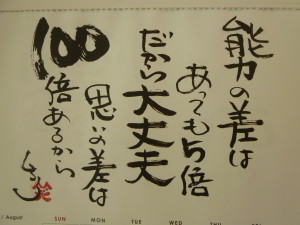 能力の差は
あっても5倍
だから大丈夫
思いの差は
100
倍あるから
笑
/ August
SUN
MON
TUE
WED
THU